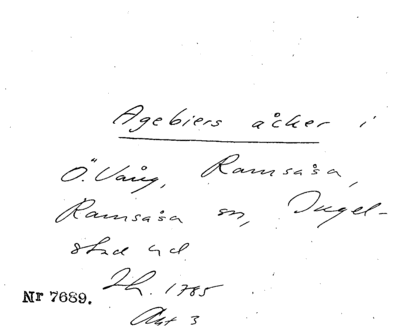 Agebiers åcker i
Ö. Vång, Ramsåsa,
Ramsåsa sn, Ingel-
stad hd
Lh. 1785
Akt 3
Nr 7689.